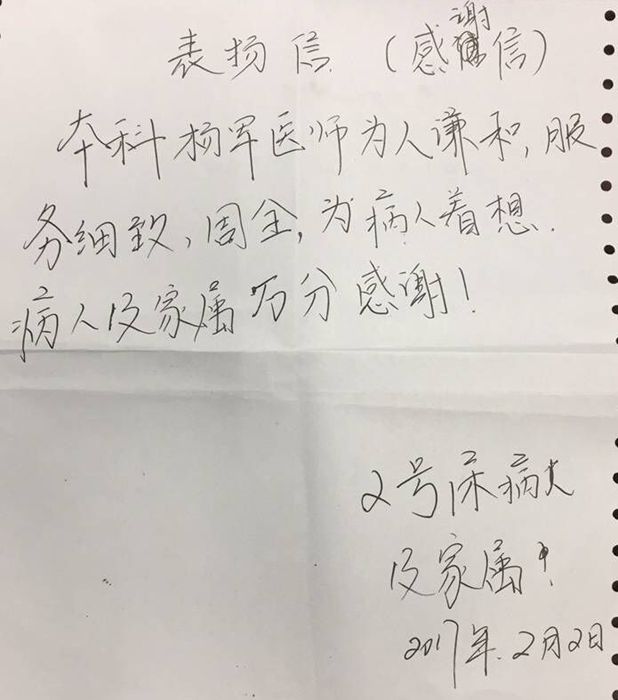 表扬信（感谢信）
本科杨军医师为人谦和，服
务细致，周全，为病人着想.
病人及家属万分感谢！
2号床病人
及家属！
2017年.2月2日